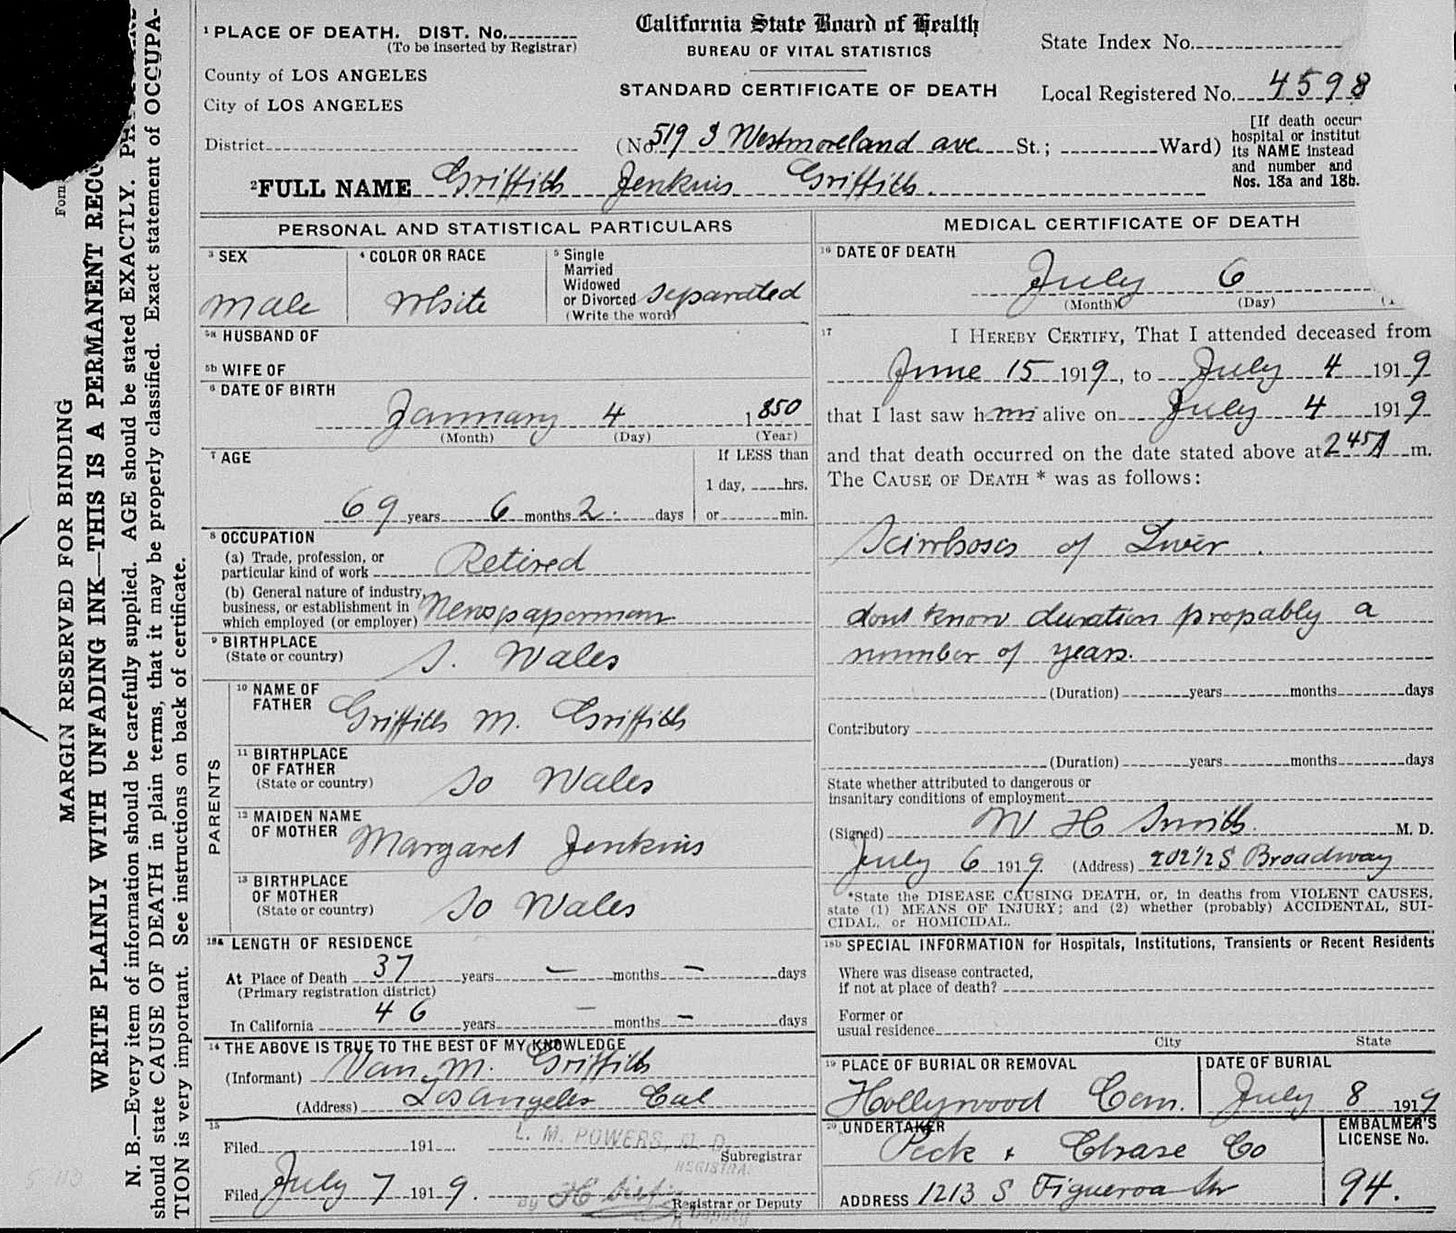 California State Board of Health
BUREAU OF VITAL STATISTICS
STANDARD CERTIFICATE OF DEATH
1 PLACE OF DEATH. DIST. No.
(To be inserted by Registrar)
County of LOS ANGELES
City of LOS ANGELES
District
State Index No.
Local Registered No. 4598
(No. 519 S Westmoreland ave St.; Ward)
[If death occur
hospital or institut
its NAME instead
and number and
Nos. 18a and 18b.
2 FULL NAME Griffith Jenkins Griffith.
PERSONAL AND STATISTICAL PARTICULARS
3 SEX
male
4 COLOR OR RACE
White
5 Single
Married
Widowed
or Divorced separated
(Write the word)
5a HUSBAND OF
5b WIFE OF
6 DATE OF BIRTH
January 4 1850
(Month) (Day) (Year)
7 AGE
69 years 6 months 2. days
If LESS than
1 day, hrs.
or min.
8 OCCUPATION
(a) Trade, profession, or
particular kind of work Retired
(b) General nature of industry,
business, or establishment in
which employed (or employer) Newspaperman
9 BIRTHPLACE
(State or country) S. Wales
PARENTS
10 NAME OF
FATHER Griffith M. Griffith
11 BIRTHPLACE
OF FATHER
(State or country) So Wales
12 MAIDEN NAME
OF MOTHER Margaret Jenkins
13 BIRTHPLACE
OF MOTHER
(State or country) So Wales
13a LENGTH OF RESIDENCE
At Place of Death 37 years — months — days
(Primary registration district)
In California 46 years — months — days
14 THE ABOVE IS TRUE TO THE BEST OF MY KNOWLEDGE
(Informant) Van M. Griffith
(Address) Los Angeles Cal
15
Filed 191
L. M. POWERS, M. D.
Subregistrar
REGISTRA
Filed July 7 1919.
by
Registrar or Deputy
Deputy
MEDICAL CERTIFICATE OF DEATH
16 DATE OF DEATH
July 6
(Month) (Day)
17 I HEREBY CERTIFY, That I attended deceased from
June 15 1919, to July 4 1919
that I last saw him alive on July 4 1919
and that death occurred on the date stated above at 2 45 A m.
The CAUSE OF DEATH * was as follows:
Scirrhoses of Liver.
dont know duration propably a
number of years.
(Duration) years months days
Contributory
(Duration) years months days
State whether attributed to dangerous or
insanitary conditions of employment
(Signed) W H Smith M. D.
July 6 1919 (Address) 202 1/2 S Broadway
*State the DISEASE CAUSING DEATH, or, in deaths from VIOLENT CAUSES,
state (1) MEANS OF INJURY; and (2) whether (probably) ACCIDENTAL, SUI-
CIDAL, or HOMICIDAL.
18b SPECIAL INFORMATION for Hospitals, Institutions, Transients or Recent Residents
Where was disease contracted,
if not at place of death?
Former or
usual residence
City State
19 PLACE OF BURIAL OR REMOVAL
Hollywood Cem.
DATE OF BURIAL
July 8 1919
20 UNDERTAKER
Peck & Chase Co
ADDRESS 1213 S Figueroa Str
EMBALMER'S
LICENSE No.
94.
MARGIN RESERVED FOR BINDING
WRITE PLAINLY WITH UNFADING INK—THIS IS A PERMANENT RECO
N. B.—Every item of information should be carefully supplied. AGE should be stated EXACTLY.
should state CAUSE OF DEATH in plain terms, that it may be properly classified. Exact statement of OCCUPA-
TION is very important. See instructions on back of certificate.